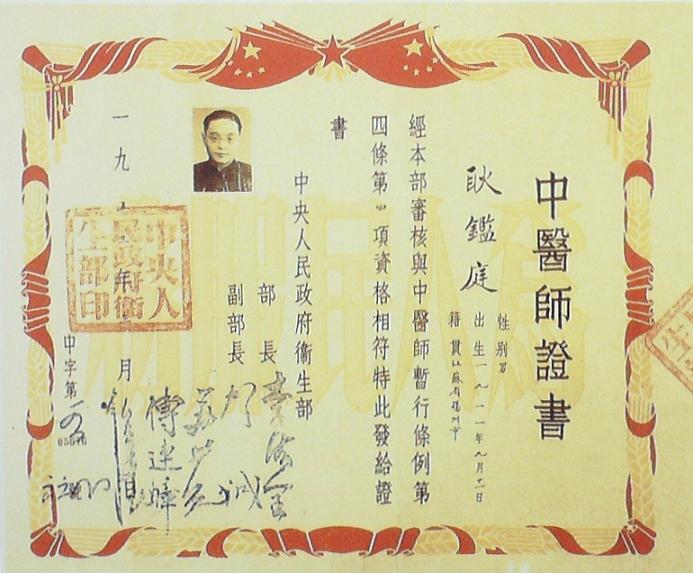 中醫師證書
耿鑑庭
性別男
出生一九一一年九月十一日
籍貫江蘇省揚州市
經本部審核與中醫師暫行條例第
四條第四項資格相符特此發給證
書
中央人民政府衛生部
部長李德全
副部長
賀誠
蘇井觀
傅連暲
一九
月
中央人
民政府衛
生部印
中字第
為人民服務